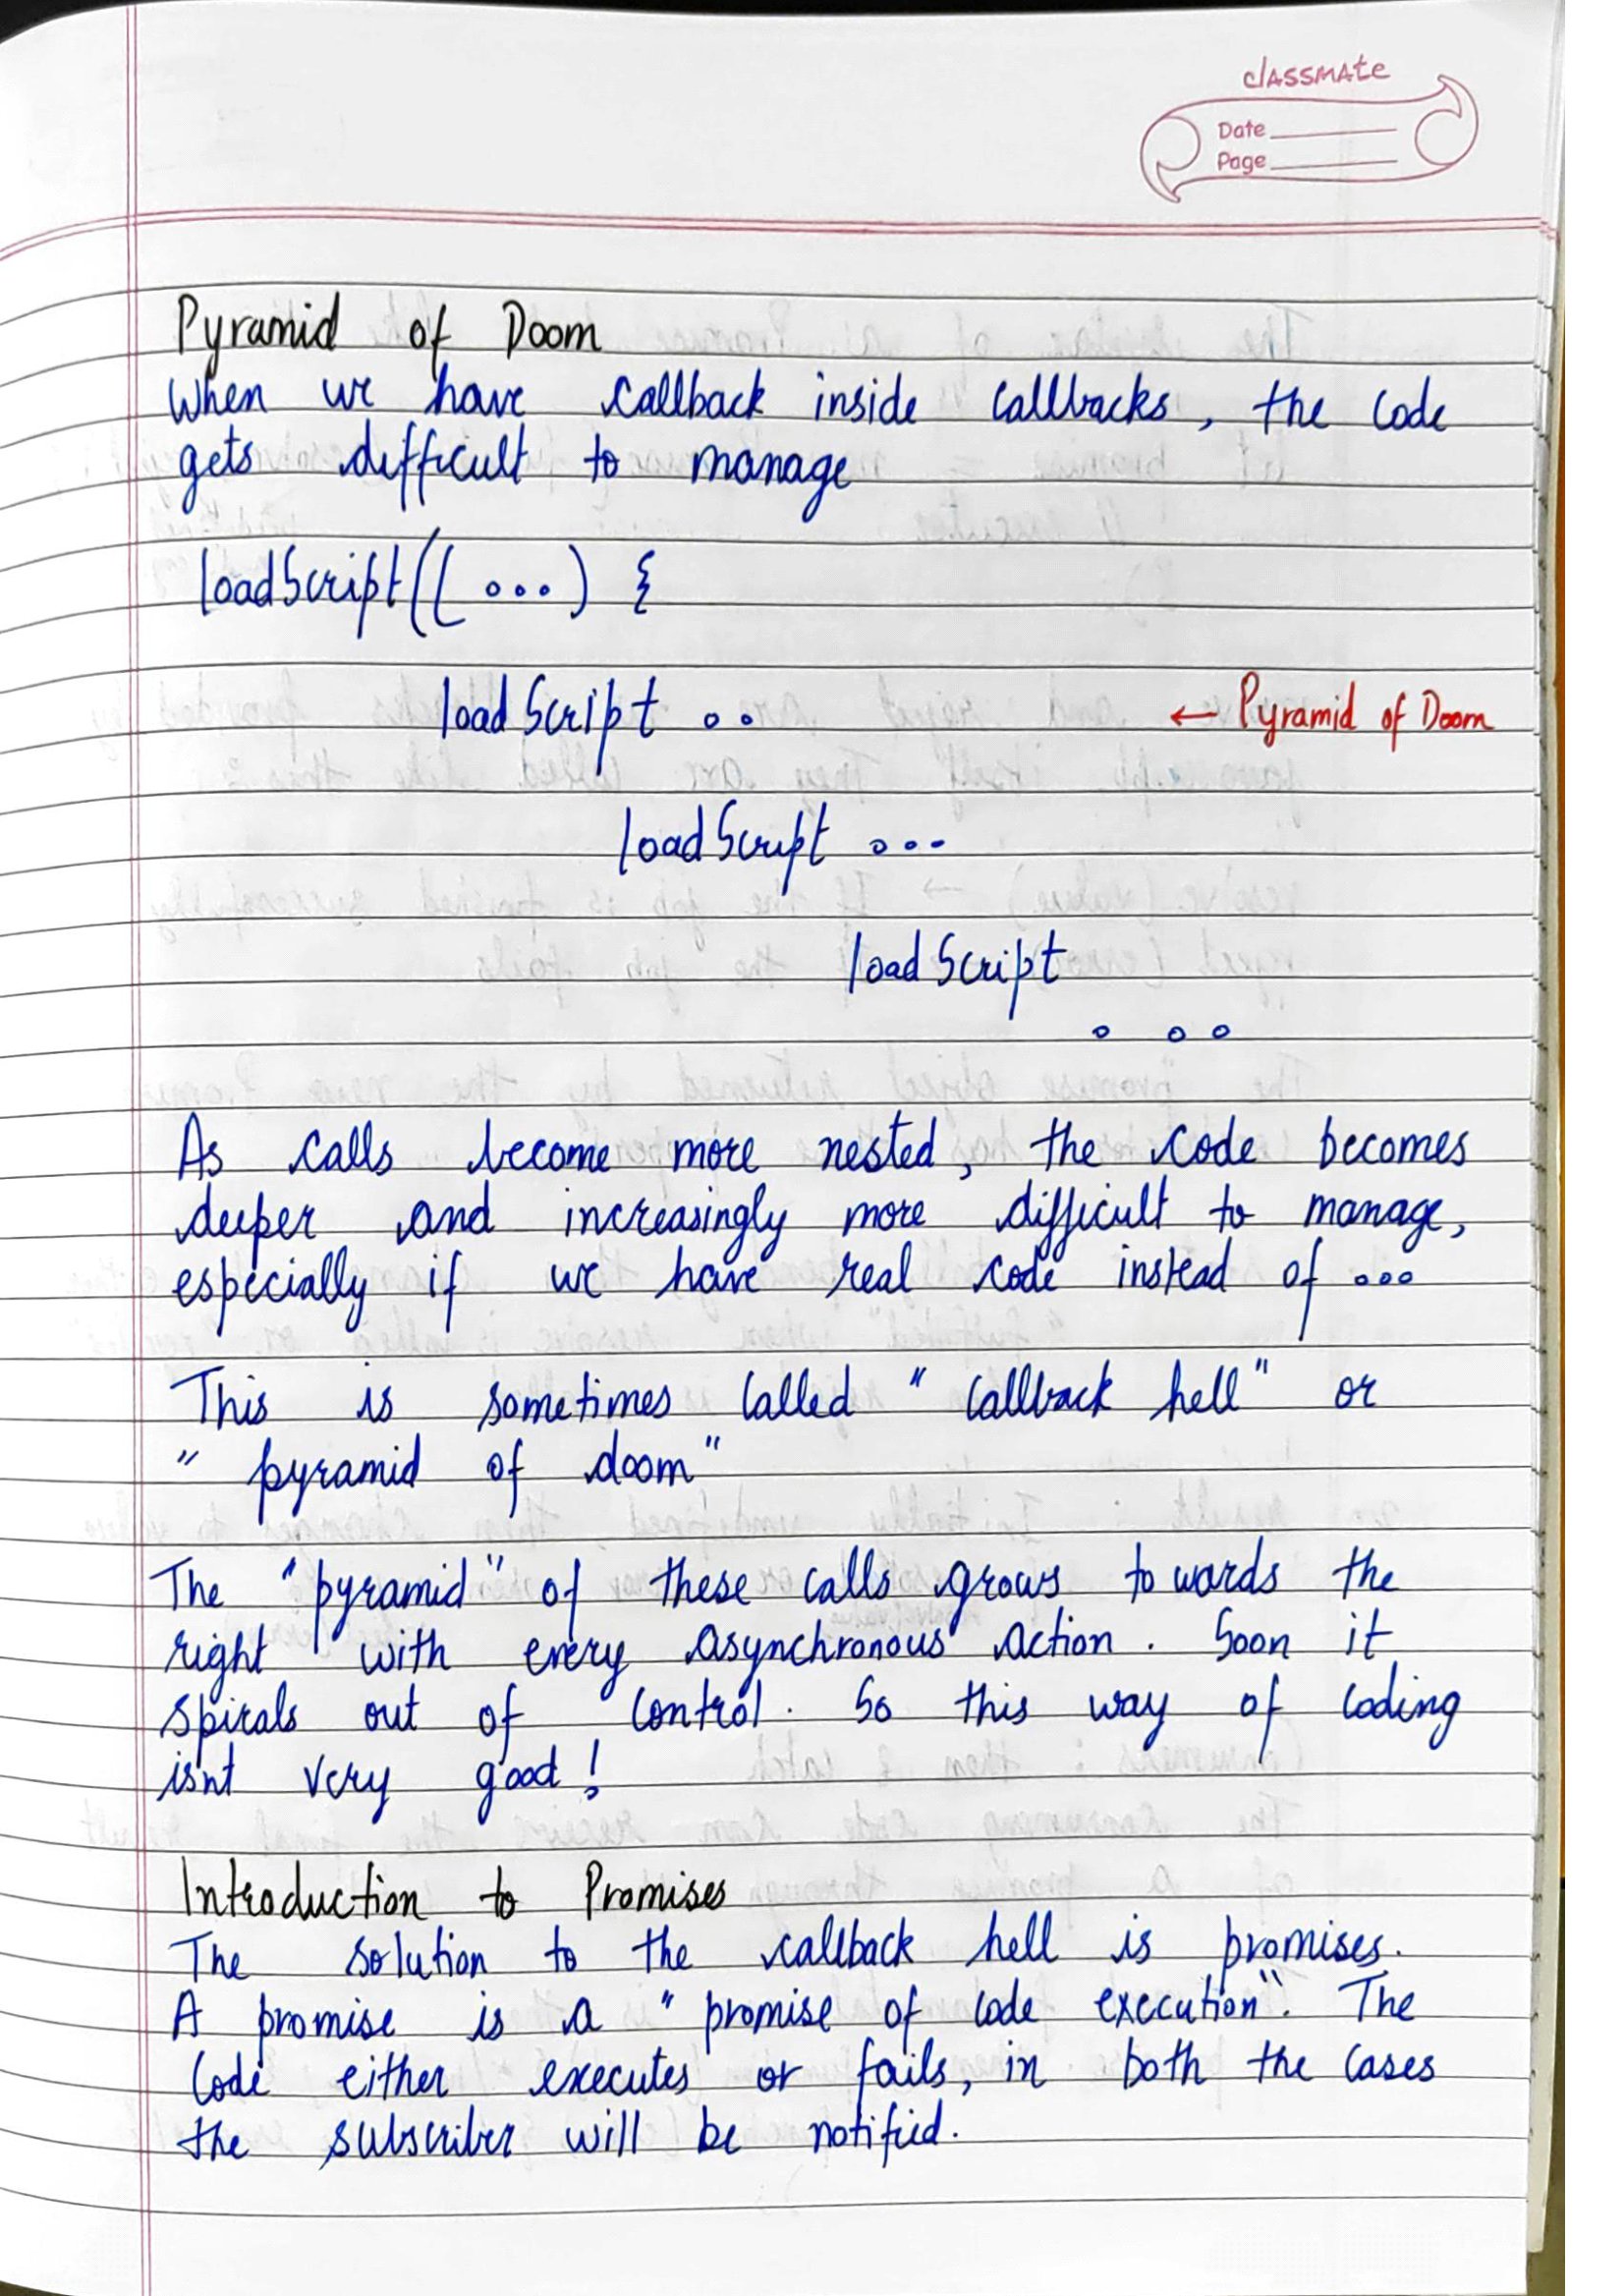 classmate
Date
Page
Pyramid of Doom
When we have callback inside callbacks, the code
gets difficult to manage
loadScript((...) {
loadScript ..
← Pyramid of Doom
loadScript ...
loadScript
...
As calls become more nested, the code becomes
deeper and increasingly more difficult to manage,
especially if we have real code instead of ...
This is sometimes called "callback hell" or
"pyramid of doom"
The "pyramid" of these calls grows towards the
right with every asynchronous action. Soon it
spirals out of control. So this way of coding
isnt very good!
Introduction to Promises
The solution to the callback hell is promises.
A promise is a "promise of code execution". The
code either executes or fails, in both the cases
the subscriber will be notified.